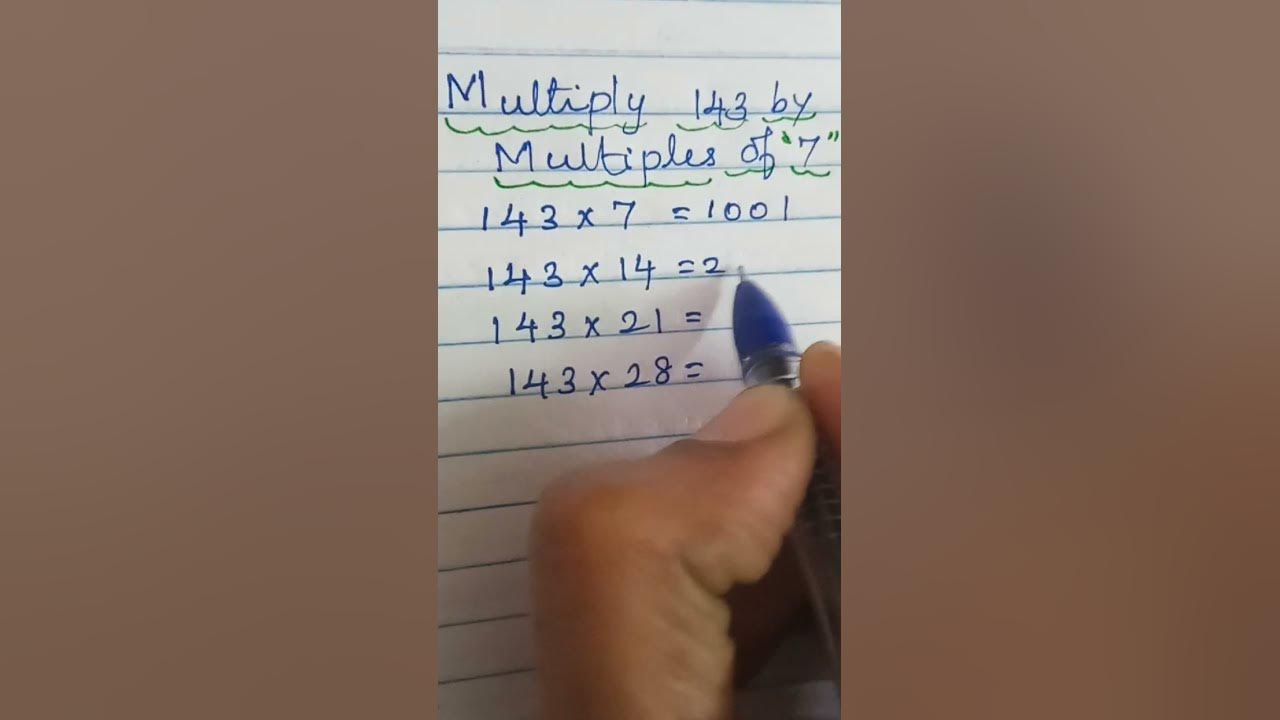 Multiply 143 by
Multiples of "7"
143 x 7 = 1001
143 x 14 = 2
143 x 21 =
143 x 28 =